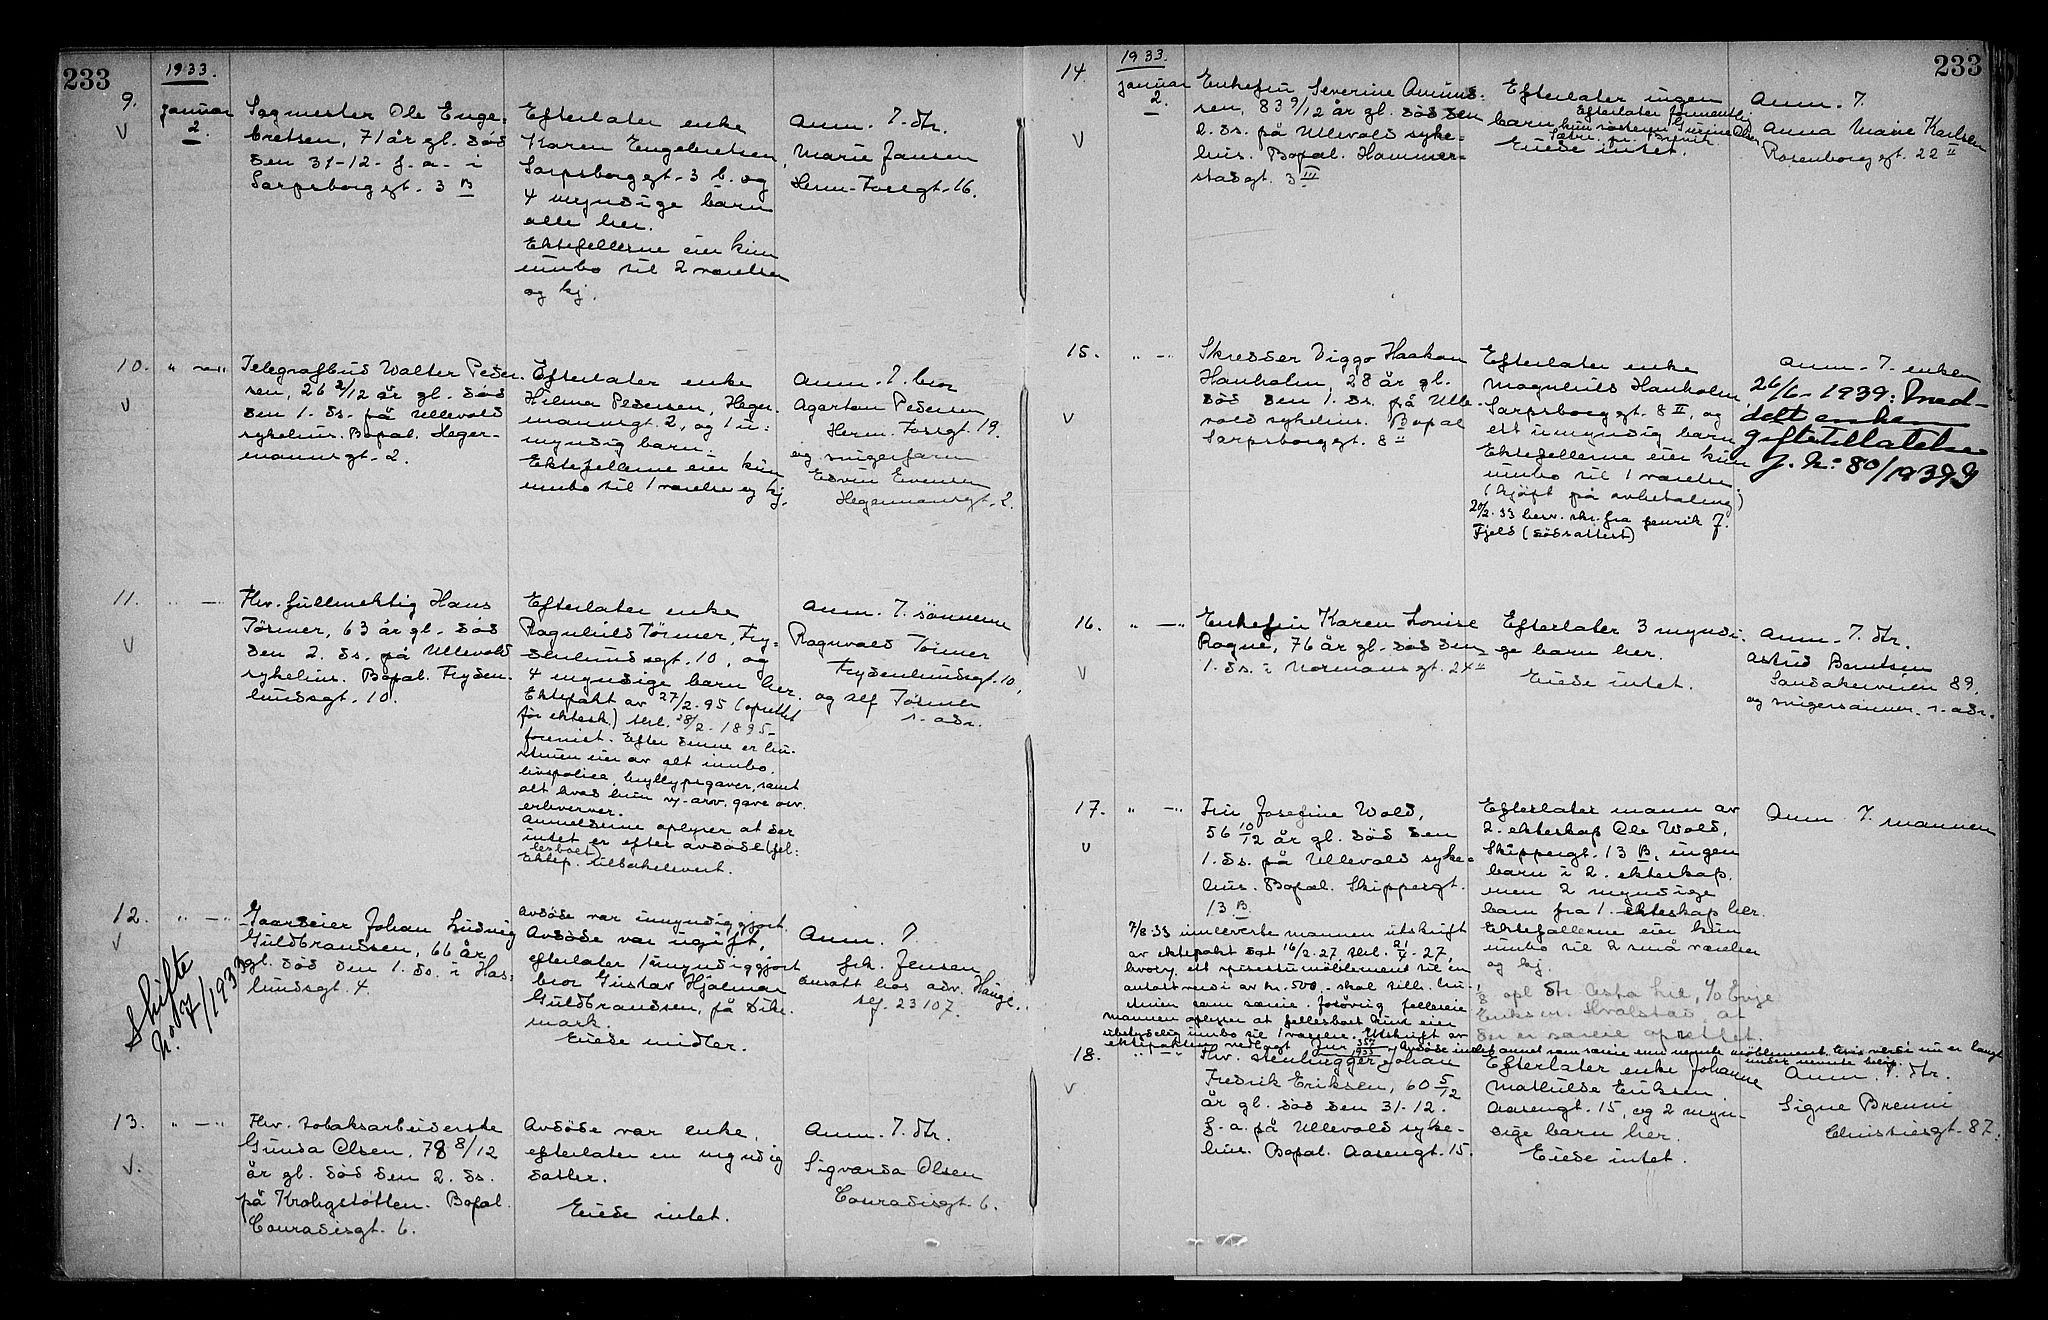 233
1933.
9.
januar
2.
Sagmester Ole Enge-
bretsen, 71 år gl. død
den 31-12. f. a. i
Sarpsborggt. 3 B
Efterlater enke
Karen Engebretsen,
Sarpsborggt. 3 b. og
4 myndige barn
alle her.
Ektefellerne eier kun
innbo til 2 værelser
og kj.
Anm. J. dtr.
Marie Jansen
Herm. Fossgt. 16.
10.
" —"
Telegrafbud Walter Peder-
sen, 26 2/12 år gl. død
den 1. ds. på Ullevold
sykehus. Bopal. Heger-
mannsgt. 2.
Efterlater enke
Hilma Pedersen, Heger-
mannsgt. 2, og 1 u-
myndig barn.
Ektefellerne eier kun
innbo til 1 værelse og kj.
Anm. J. bror
Agarton Pedersen
Herm. Fossgt. 19.
og svigerfaren
Edvin Evensen
Hegermannsgt. 2.
11.
" —"
Fhv. fullmektig Hans
Tørmer, 63 år gl. død
den 2. ds. på Ullevold
sykehus. Bopal. Fryden-
lundsgt. 10.
Efterlater enke
Ragnhild Tørmer, Fry-
denlundsgt. 10, og
4 myndige barn her.
Ektepakt av 27/2-95 (oprettet
før ektesk.) tinl. 28/2-1895-
forevist. Efter denne er hu-
struen eier av alt innbo,
livspolice, bryllupsgaver, samt
alt hvad hun v/ arv, gave osv.
erhverver.
Anmelderne oplyser at der
intet er efter avdøde (fel-
lesboet)
Ektep. tilbakelevert.
Anm. J. sønnerne
Ragnvald Tørmer
Frydenlundsgt. 10,
og Leif Tørmer
s. adr.
12.
" —"
Gaardeier Johan Ludvig
Guldbrandsen, 66 år
gl. død den 1. ds. i Has-
lundsgt. 4.
Skifte
No 7/1933
Avdøde var umyndiggjort.
Avdøde var ugift,
efterlater 1 umyndiggjort
bror Gustav Hjalmar
Guldbrandsen, på Dike-
mark.
Eiede midler.
Anm. J.
frk. Jensen
ansatt hos adv. Hauge.
tlf. 23107.
13.
" —"
Fhv. tobaksarbeiderske
Gunda Olsen, 78 8/12
år gl. død den 2. ds.
på Krohgstøtten. Bopal.
Conradisgt. 6.
Avdøde var enke,
efterlater en myndig
datter.
Eiede intet.
Anm. J. dtr.
Sigvarda Olsen
Conradisgt. 6.
233
1933.
14.
januar
2.
Enkefru Severine Amund-
sen, 83 9/12 år gl. død den
2. ds. på Ullevold syke-
hus. Bopal. Hammer-
stadgt. 3 III
Efterlater ingen
barn
Efterlater formentlig
kun søsteren Gurine Olsen
Sætre pr. Brevik
Eiede intet.
Anm. J.
Anna Marie Karlsen
Rosenborggt. 22 II
15.
" —"
Skredder Viggo Haakon
Hanholm, 28 år gl.
død den 1. ds. på Ulle-
vold sykehus. Bopal
Sarpsborggt. 8 II
Efterlater enke
Magnhild Hanholm,
Sarpsborggt. 8 II, og
ett umyndig barn
Ektefellerne eier kun
innbo til 1 værelse
(kjøpt på avbetaling)
20/2-33 henv. skr. fra Henrik J.
Fjeld (dødsattest)
Anm. J. enken
26/6-1939: Med-
delt enken
giftetillatelse
J. No: 80/1939 G
16.
" —"
Enkefru Karen Lovise
Rogne, 76 år gl. død den
1. ds. i Normannsgt. 24 II
Efterlater 3 myndi-
ge barn her.
Eiede intet.
Anm. J. dtr.
Astrid Berntsen
Sandakerveien 89.
og svigersønnen s. adr.
17.
" —"
Fru Josefine Wold,
56 10/12 år gl. død den
1. ds. på Ullevold syke-
hus. Bopal. Skippergt.
13 B
7/8-33 innleverte mannen utskrift
av ektepakt dat 16/2-27, tinl. 21/4-27,
hvorv. ett spisestuemøblement til en
ansatt verdi av kr. 500,- skal tilh. hu-
struen som særeie. forøvrig felleseie
mannen oplyser at fellesboet kun eier
ubetydelig innbo til 1 værelse. Utskrift av
ektepakten vedlagt
Avdøde intet annet som særeie enn nevnte møblement hvis verdi nu er langt
under nevnte beløp.
Efterlater mann av
2. ekteskap Ole Wold,
Skippergt. 13 B, ingen
barn i 2. ekteskap,
men 2 myndige
barn fra 1. ekteskap her.
Ektefellerne eier kun
innbo til 2 små værelser
og kj.
Anm. J. mannen
18.
" —"
Fhv. stenhugger Johan
Fredrik Eriksen, 60 5/12
år gl. død den 31-12.
f. a. på Ullevold syke-
hus. Bopal. Aasengt. 15.
Efterlater enke Johanne
Mathilde Eriksen
Aasengt. 15, og 2 myn-
dige barn her.
Eiede intet.
Anm. J. dtr.
Signe Brenni
Christiesgt. 87.